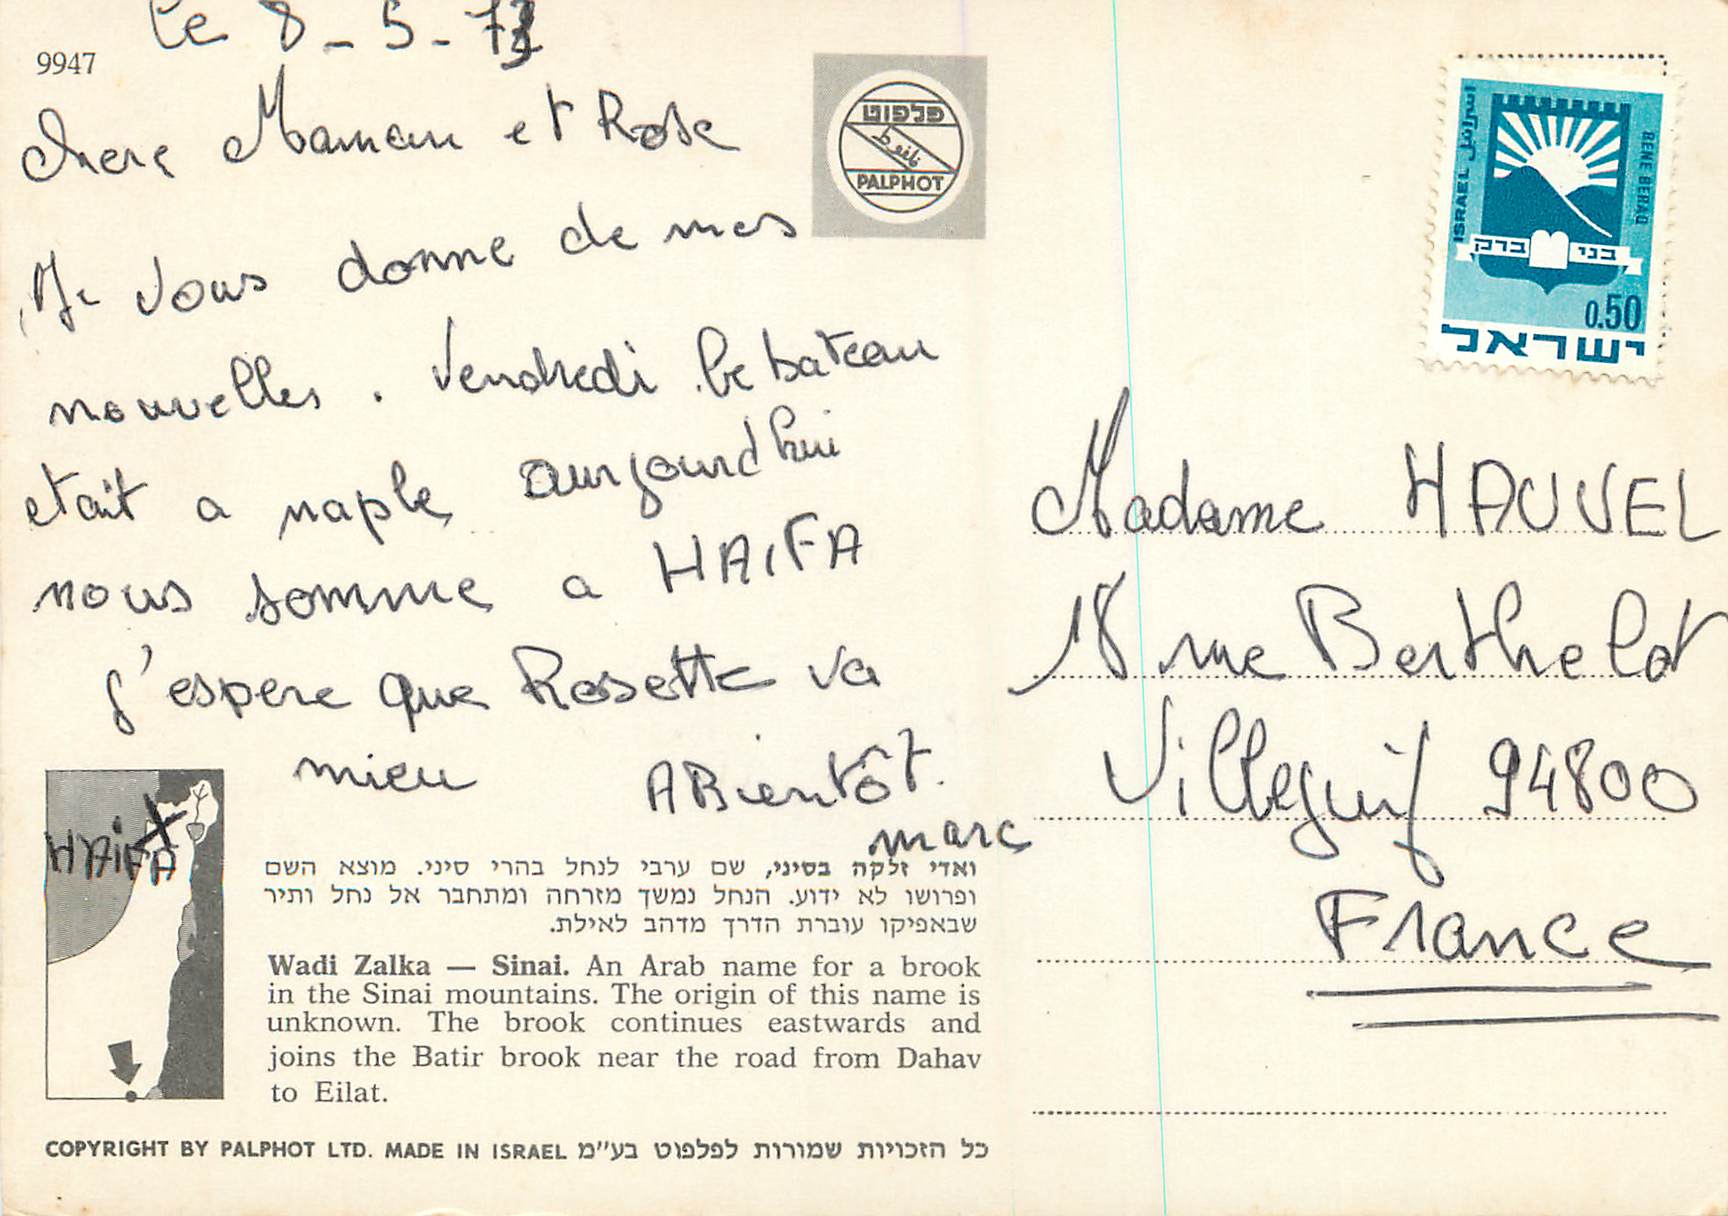 9947
le 8-5-73
chere Maman et Rose
Je vous donne de mes
nouvelles. Vendredi le bateau
etait a naple aurjourd'hui
nous somme a HAIFA
j'espere que Rosette va
mieu ABientôt.
marc
פלפוט
PALPHOT
ISRAEL اسرائيل
BENE BERAQ
בני ברק
0.50
ישראל
Madame HAUVEL
18 rue Berthelot
Villejuif 94800
France
HAiFA
ואדי זלקה בסיני, שם ערבי לנחל בהרי סיני. מוצא השם
ופרושו לא ידוע. הנחל נמשך מזרחה ומתחבר אל נחל ותיר
שבאפיקו עוברת הדרך מדהב לאילת.
Wadi Zalka — Sinai. An Arab name for a brook
in the Sinai mountains. The origin of this name is
unknown. The brook continues eastwards and
joins the Batir brook near the road from Dahav
to Eilat.
COPYRIGHT BY PALPHOT LTD. MADE IN ISRAEL כל הזכויות שמורות לפלפוט בע"מ